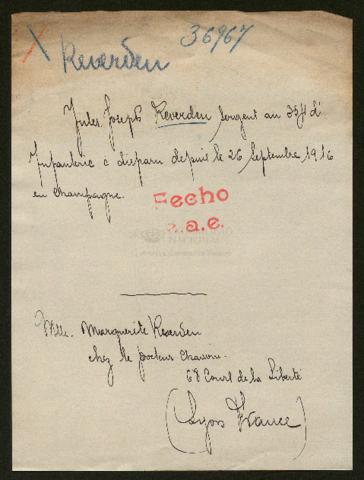 36967
Reverden
Jules Joseph Reverden Sergent au d'
Infanterie a disparu depuis le 26 Septembre 1916
en Champagne.
Fecho
.a.e.
Mlle. Marguerite Reverden
chez le docteur
68 Court de la Liberté
(Lyon France)